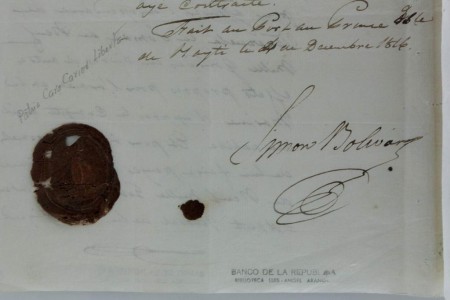 aye contraité.
Fait au Port au Prince Isle
de Hayti le 4 de Decembre 1816.
Simon Bolivar
BANCO DE LA REPUBLICA
BIBLIOTECA LUIS-ANGEL ARANGO